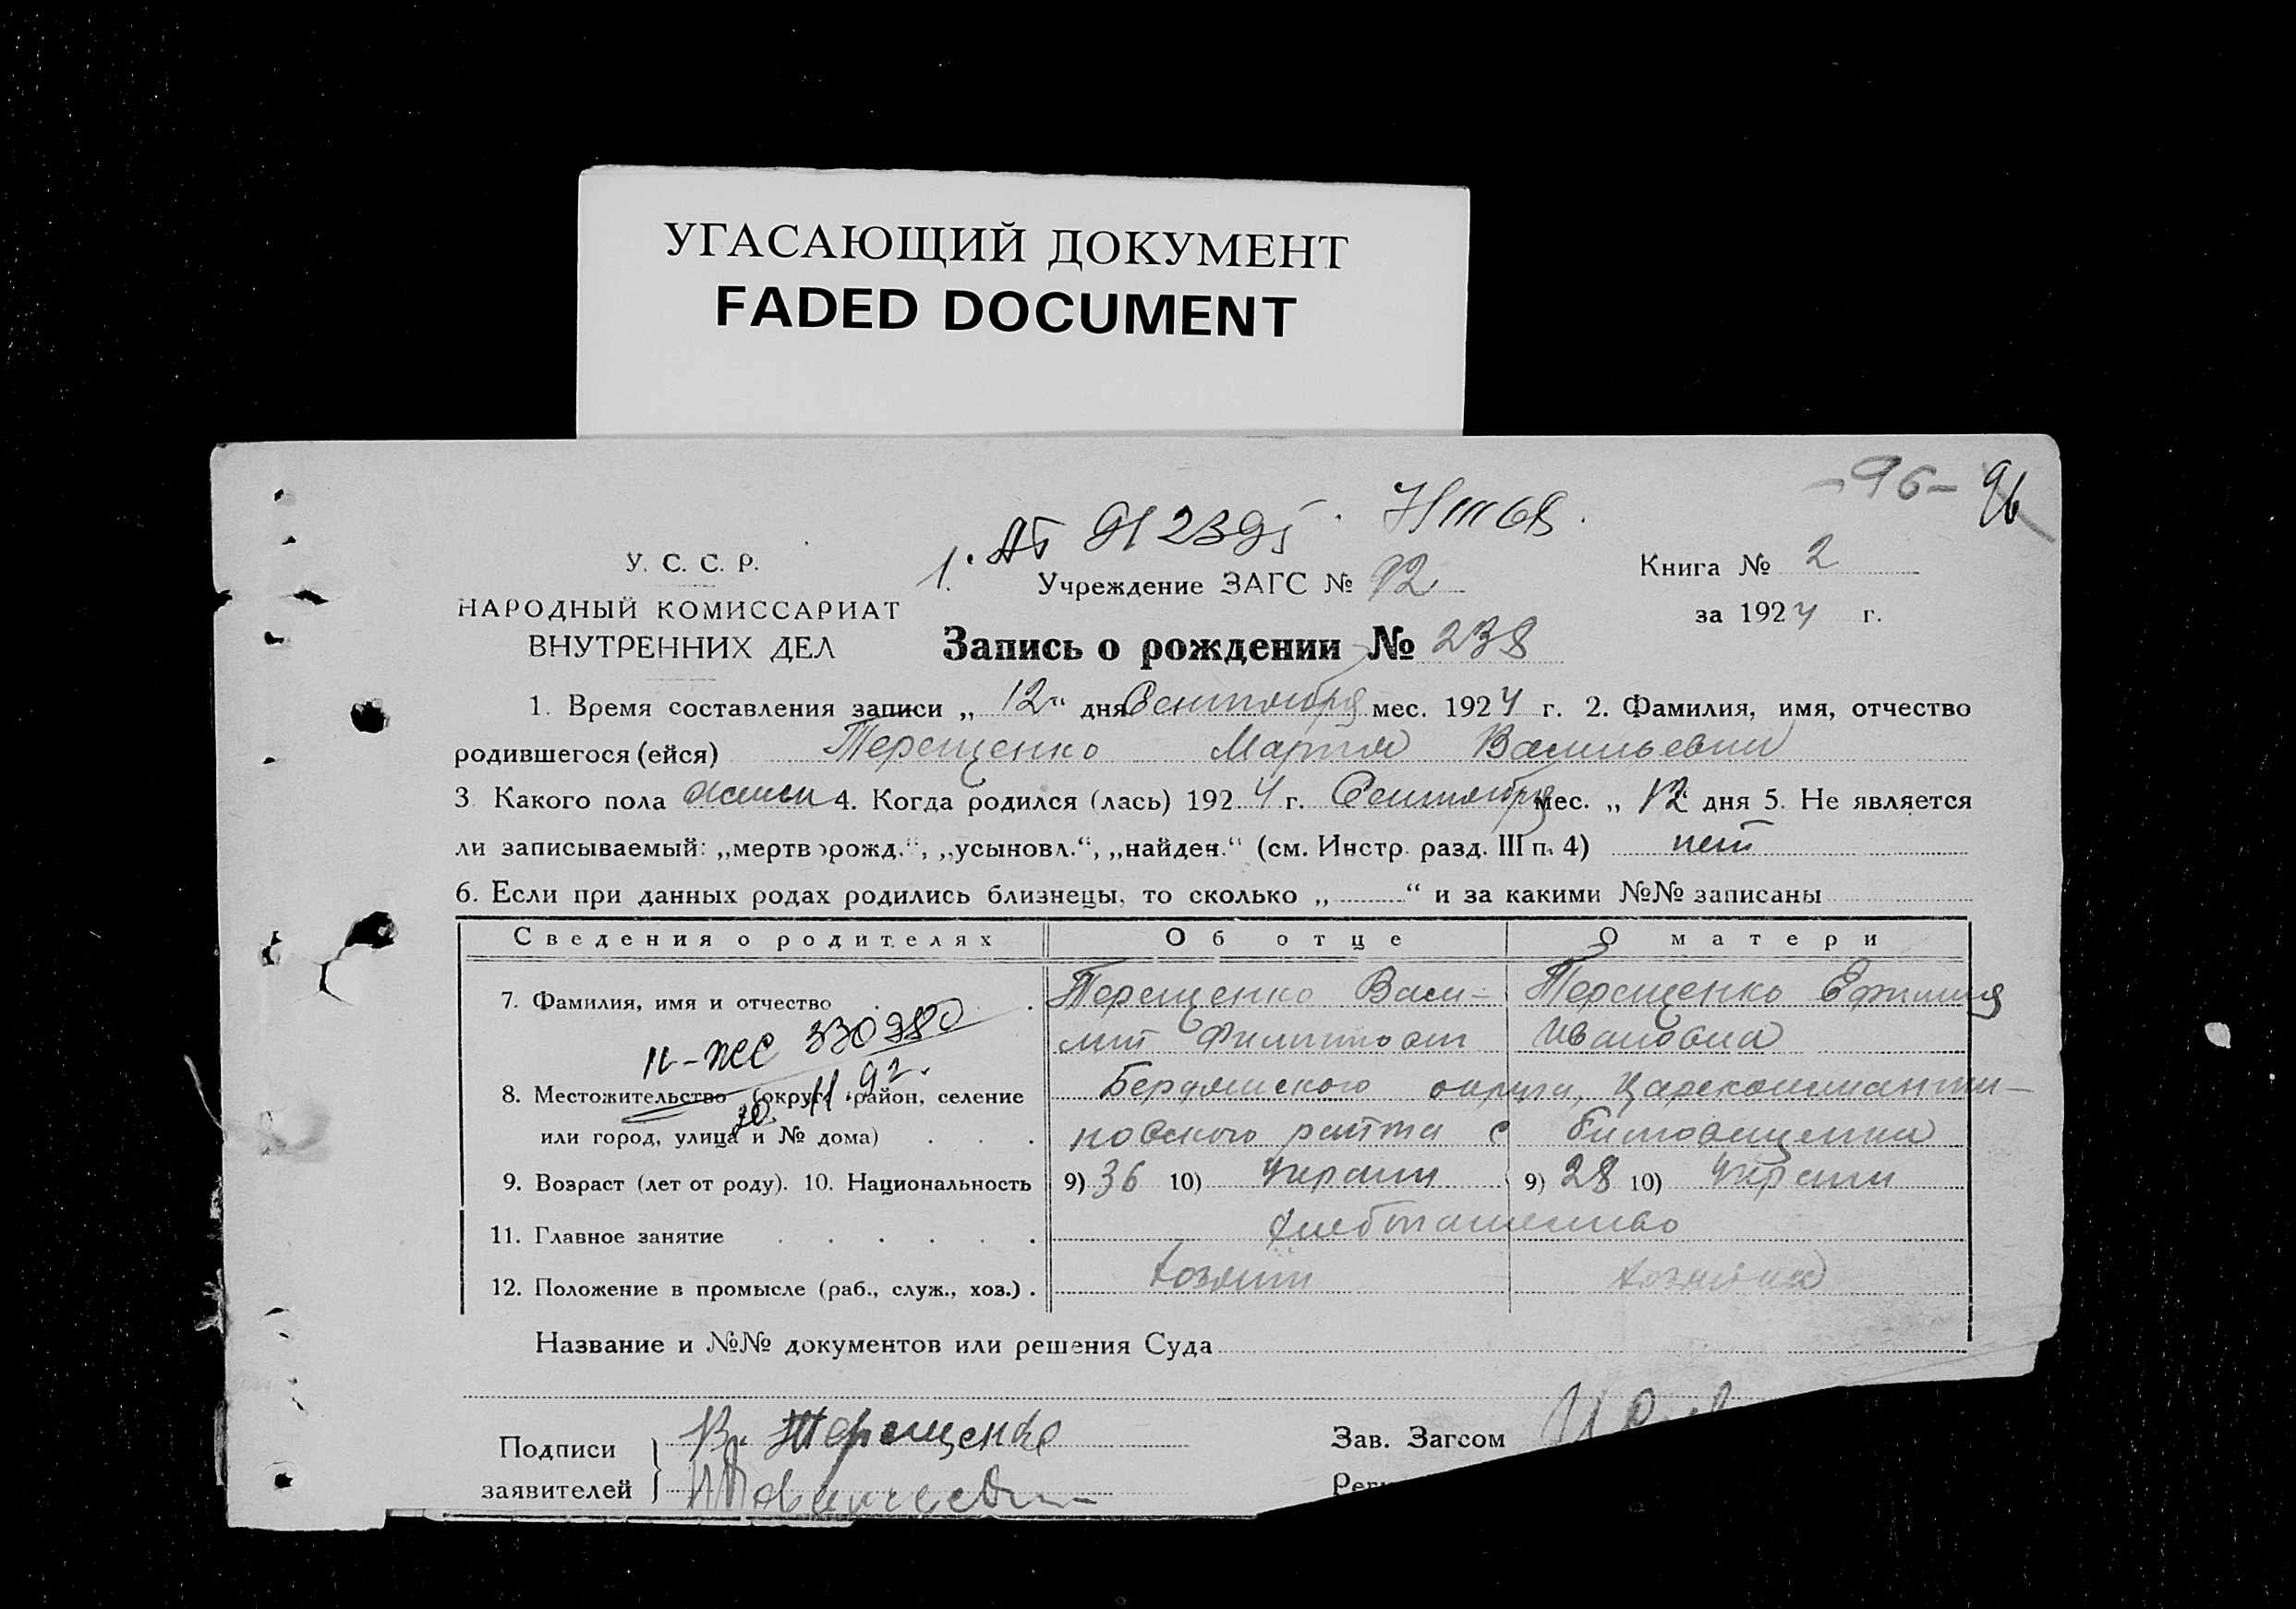 УГАСАЮЩИЙ ДОКУМЕНТ
FADED DOCUMENT
-96- 96
У. С. С. Р.
НАРОДНЫЙ КОМИССАРИАТ
ВНУТРЕННИХ ДЕЛ
Учреждение ЗАГС № 92
Книга № 2
за 1924 г.
Запись о рождении № 238
1. Время составления записи „ 12 “ дня Сентября мес. 1924 г. 2. Фамилия, имя, отчество
родившегося (ейся) Терещенко Мария Васильевна
3. Какого пола женск 4. Когда родился (лась) 1924 г. Сентября мес. „ 12 дня 5. Не является
ли записываемый: „мертворожд.“, „усыновл.“, „найден.“ (см. Инстр. разд. III п. 4) нет
6. Если при данных родах родились близнецы, то сколько „ “ и за какими №№ записаны
Сведения о родителях Об отце О матери
7. Фамилия, имя и отчество Терещенко Васи- Терещенко Ефимия
Ивановна
330980
8. Местожительство (округ, район, селение
Бердянского округа, Царекон‌станти-
или город, улица и № дома) . . .
новского района с
9. Возраст (лет от роду). 10. Национальность 9) 36 10) Украин 9) 28 10) Украин
11. Главное занятие хлебопашество
12. Положение в промысле (раб., служ., хоз.) . хозяин хозяйка
Название и №№ документов или решения Суда
Подписи
заявителей
В. Терещенко
Зав. Загсом